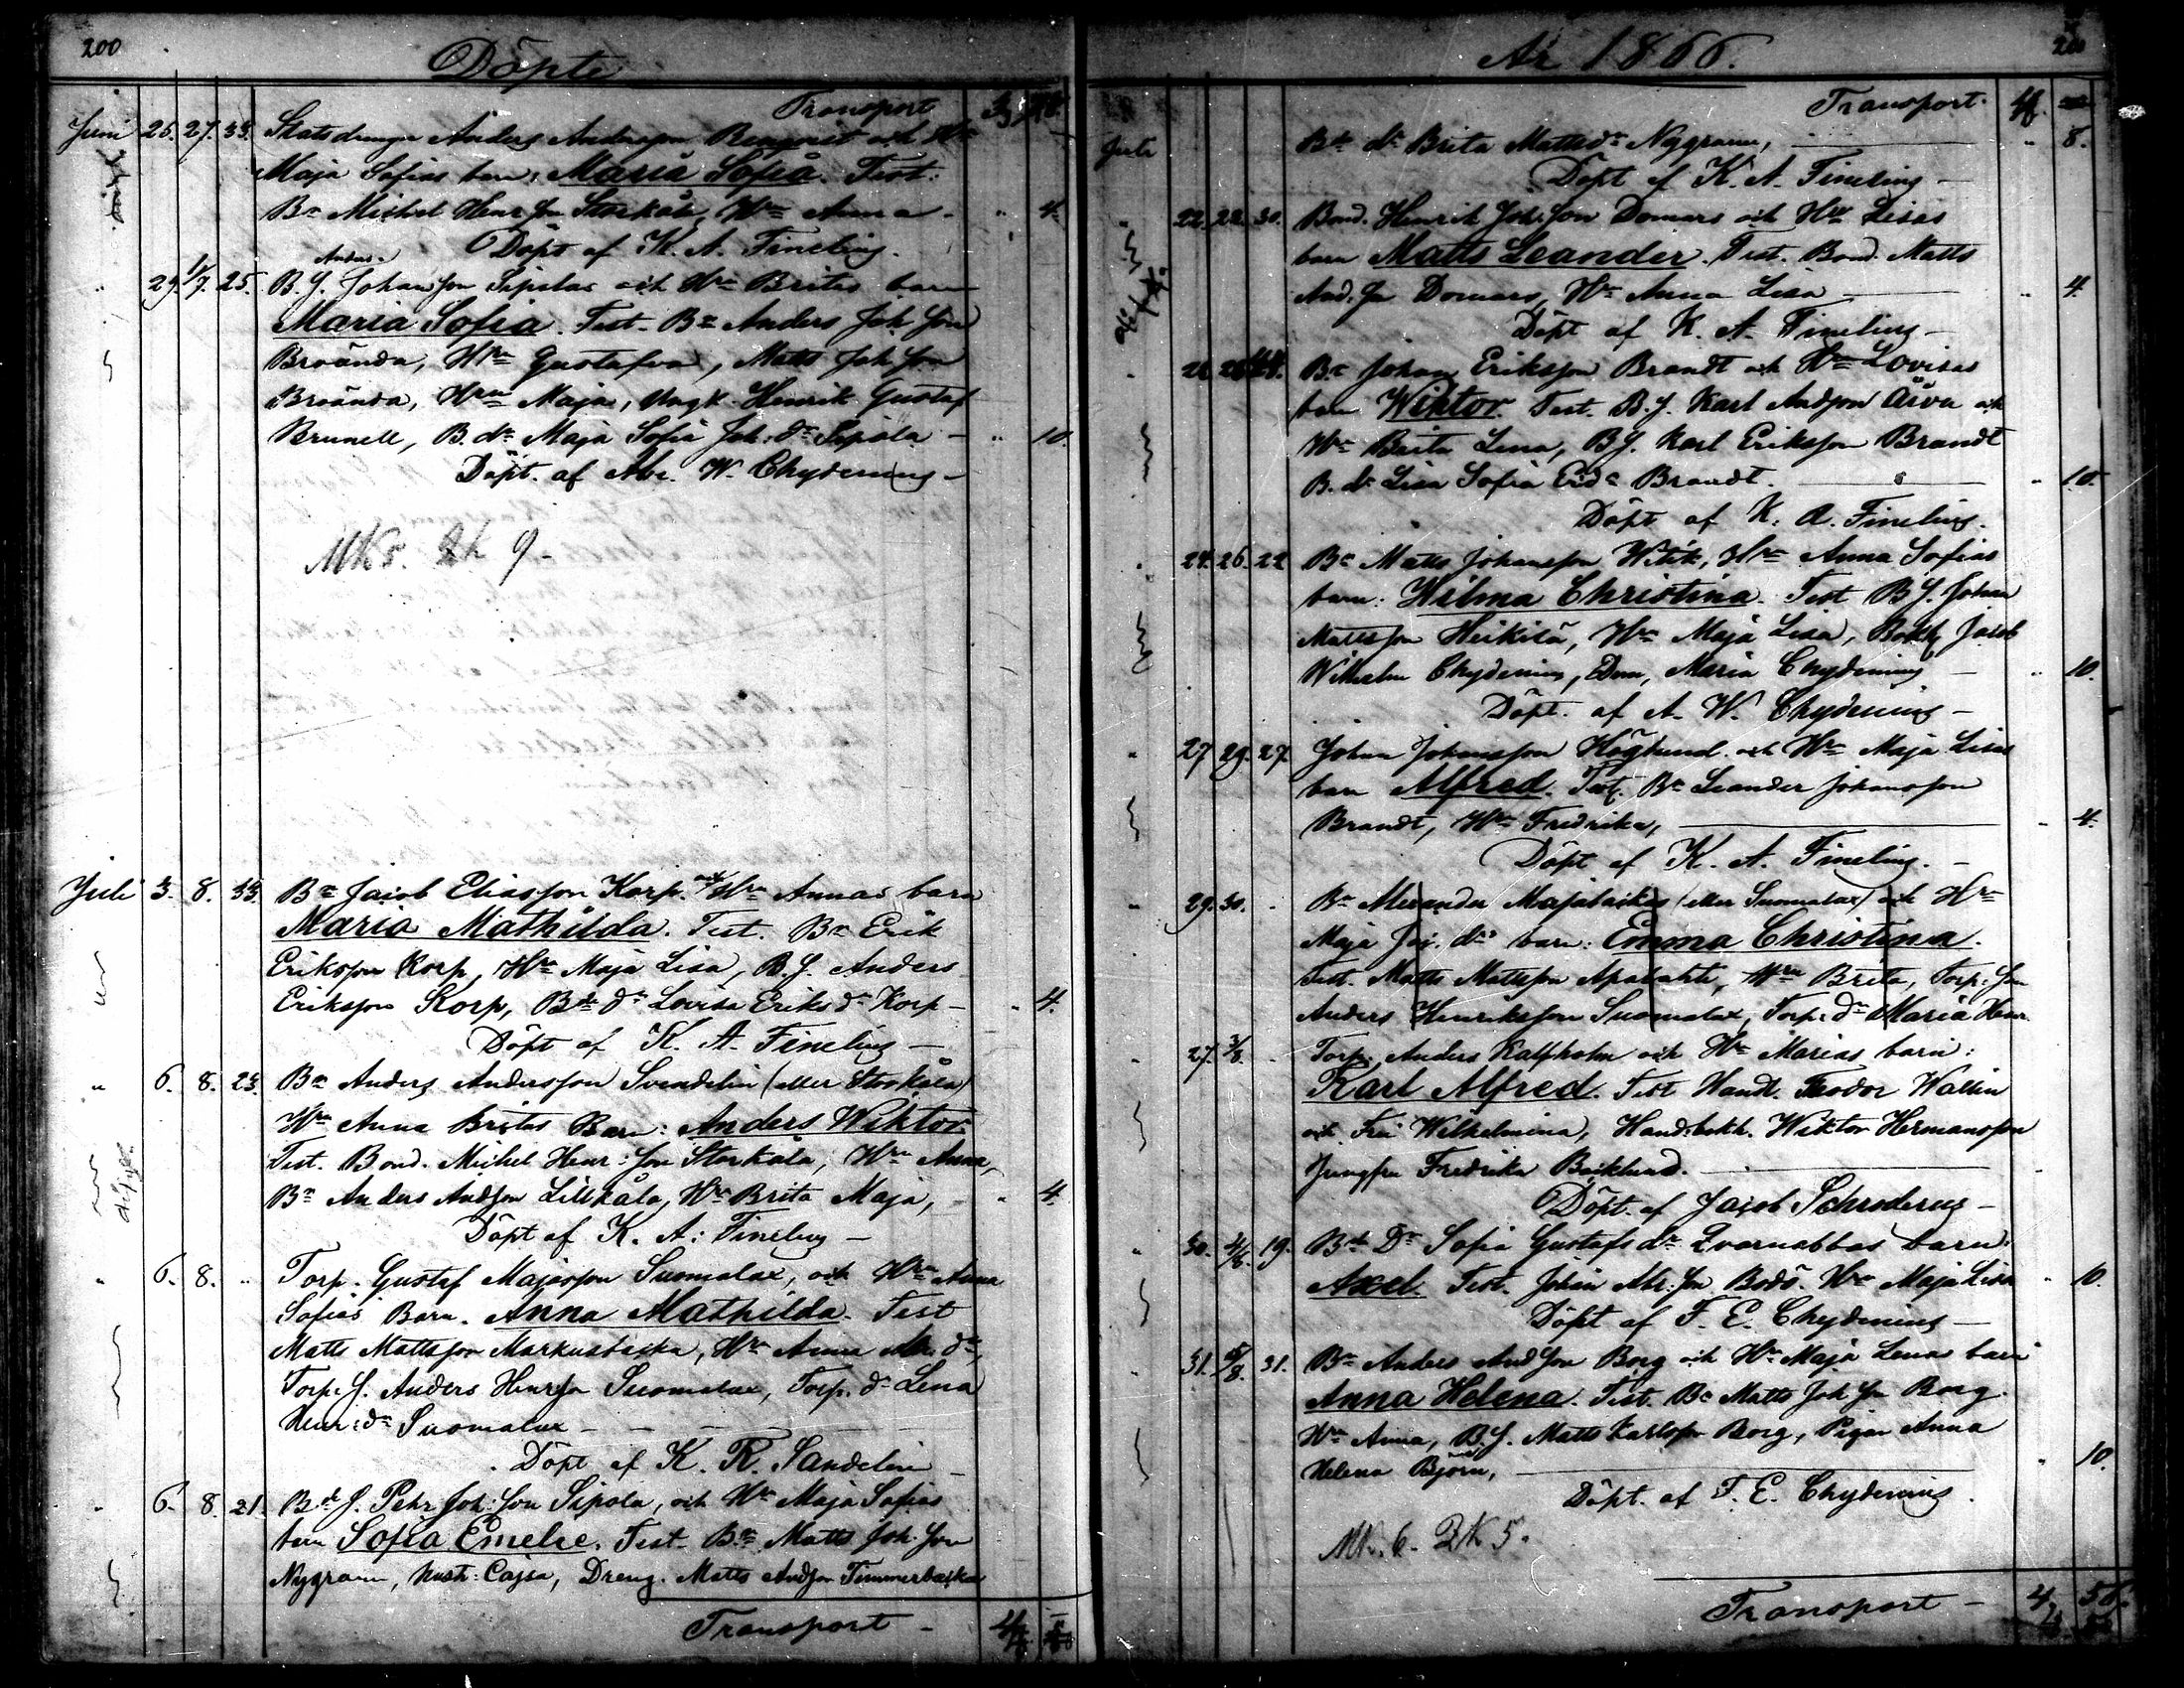 200
Döpte
Transport
Juni 25. 27. 33. Anders Andersson och Hu
Maja Sofias barn: Maria Sofia. Test.
Bn Michel Henr Son Storkåla, Hn Anna - " 4.
Döpt af K. A. Fineling.
Anders
" 29. 1/7. 25. B. S. Johansson Sipolas och Hn Britas barn
Maria Sofia. Test. Bn Anders Joh Son
Broända, Hn Gustafva, Matts Joh Son
Broända, Hrn Maja, Yngl. Henrik Gustaf
Brunell, B. dr Maja Sofia Joh: dr Sipola - " 10.
Döpt. af Abr. W. Chydenius -
Mk 8. Qk 9 -
Juli 3. 8. 33. Bn Jacob Eliasson Korp. och Hn Annas barn
Maria Mathilda. Test. Bn Erik
Eriksson Korp, Hn Maja Lisa, B. S. Anders
Eriksson Korp, Bd dr Lovisa Eriks dr Korp - " 4.
Döpt af K. A. Fineling -
" 6. 8. 23. Bn Anders Andersson Svendelin (eller Storkåla)
Hn Anna Britas Barn: Anders Wiktor.
Test. Bond. Michel Henr: Son Storkåla, Hrn Anna,
Bn Anders Andson Lillkåla, Hn Brita Maja, - " 4.
Döpt af K. A: Fineling -
" 6. 8. " Torp. Gustaf Majasson Suomalax, och Hrn Anna
Sofias Barn. Anna Mathilda. Test
Matts Mattsson Markusbacka, Hn Anna dr,
Torp. S. Anders Henrson Suomalax, Torp. dr Lena
Henr: dr Suomalax -
Döpt af K. R. Sandelin -
" 6. 8. 21. Bd S. Pehr Joh: Son Sipola, och Hn Maja Sofias
barn Sofia Emelie. Test. Bn Matts Joh. Son
Nygrann, Hust: Cajsa, Dreng. Matts Andson Timmerbacka
Transport -
År 1866.
200
Transport.
Juli Bd dr Brita Matts dr Nygrann, " 8.
Döpt af K. A. Fineling -
" 22. 22. 30. Bond. Henrik Joh: Son Domars och Hn Lisas
barn Matts Leander. Test. Bond. Matts
And. Son Domars, Hn Anna Lisa " 4.
Döpt af K. A. Fineling -
Bn Johan Eriksson Brandt och Hn Lovisas
barn Wiktor. Test. B. S. Karl Andson Ärva och
Hn Brita Lena, B S. Karl Eriksson Brandt
B. dr Lisa Sofia Er dr Brandt. " 10.
Döpt af K. A. Fineling.
" 24. 26. 22 Bn Matts Johansson Witik, Hrn Anna Sofias
barn: Wilma Christina. Test B S. Johan
Mattsson Heikilä, Hn Maja Lisa, Bokh. Jacob
Wilhelm Chydenius, Dem. Maria Chydenius - " 10.
Döpt. af A. W. Chydenius -
" 27 29. 27. Johan Johansson Höglund och Hn Maja Lisas
barn Alfred. Test. Bn Leander Johansson
Brandt, Hn Fredrika, - 4.
Döpt af K. A. Fineling. -
" 29. 30. - Bn Alexander Majabacka (eller Suomalax) och Hrn
Maja dr barn: Emma Christina.
Test. Matts Mattsson Apalahti, Hrn Brita, Torp: Son
Anders Henriksson Suomalax, Torp. dr Maria Henr.
" 27. 3/8. - Torp. Anders Kalfholm och Hn Marias barn:
Karl Alfred. Test Handl. Feodor Wallin
och Fru Wilhelmina, Hand.bokh. Wiktor Hermansson
Jungfru Fredrika Backlund.
Döpt. af Jacob Schroderus -
" 30. 19. Bd Dr Sofia Gustafs dr Qvarnabbas barn:
Axel. Test. Johan Abr: Son Bodö. Hn Maja Lisa " 10.
Döpt af F. E. Chydenius -
31. 5/8. 31. Bn Anders AndSon Borg och Hn Maja Lenas barn
Anna Helena. Test. Bn Matts Joh Son Borg.
Hn Anna, B. S. Matts Karlsson Borg, Pigan Anna
Helena Björn, " 10.
Döpt. af F. E. Chydenius.
Mk. 6. Qk 5.
Transport -